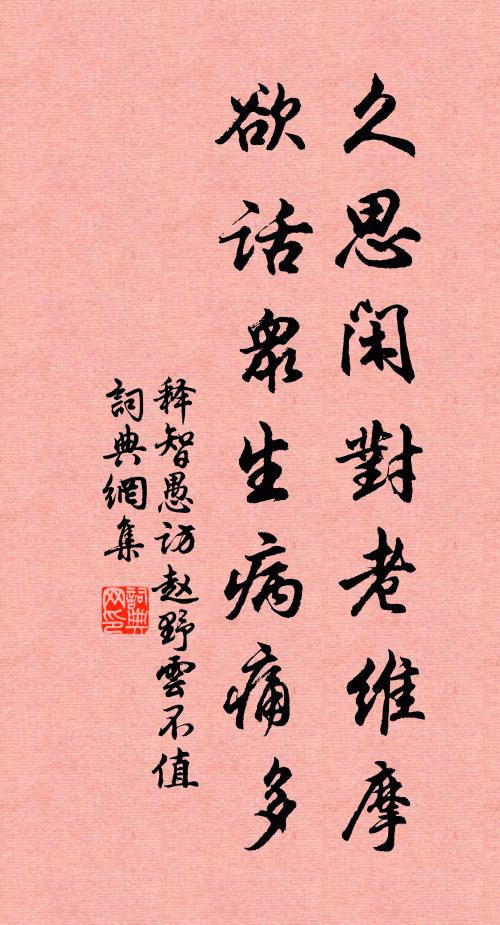 久思閑對老維摩
欲話眾生病痛多
释智愚访赵野雲不值
詞典網集
詞典网印